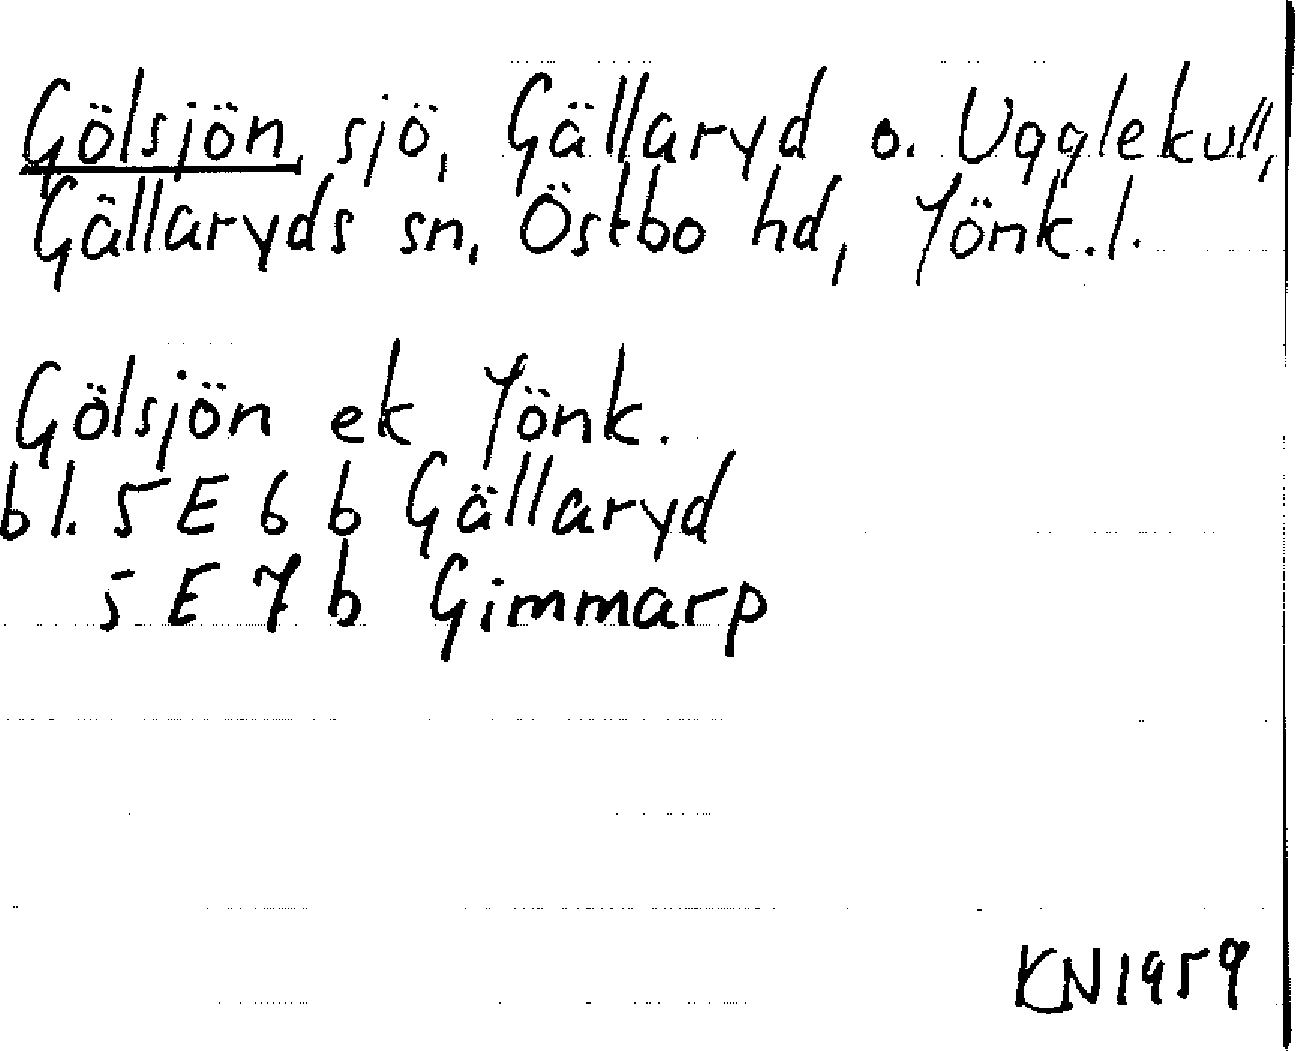 Gölsjön, sjö, Gällaryd o. Ugglekull,
Gällaryds sn, Östbo hd, Jönk.l.
Gölsjön ek Jönk.
bl. 5 E 6 b Gällaryd
5 E 7 b Gimmarp
KN1959